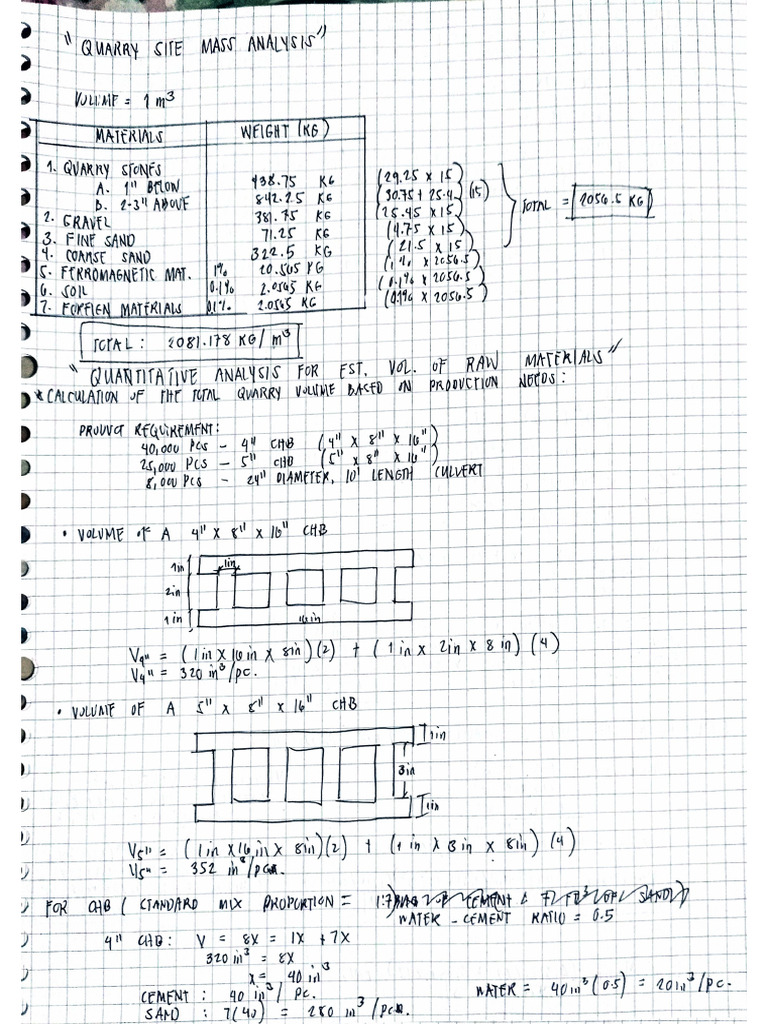 "QUARRY SITE MASS ANALYSIS"
VOLUME = 1 m³
MATERIALS WEIGHT (KG)
1. QUARRY STONES
A. 1" BELOW 438.75 KG (29.25 x 15)
B. 2-3" ABOVE 842.25 KG (30.75 + 25.4)(15)
2. GRAVEL 381.75 KG (25.45 x 15)
3. FINE SAND 71.25 KG (4.75 x 15)
4. COARSE SAND 322.5 KG (21.5 x 15)
TOTAL = 2056.5 KG
5. FERROMAGNETIC MAT. 1% 20.565 KG (1% x 2056.5)
6. SOIL 0.1% 2.0565 KG (0.1% x 2056.5)
7. FOREIGN MATERIALS 0.1% 2.0565 KG (0.1% x 2056.5)
TOTAL : 2081.178 KG/m³
"QUANTITATIVE ANALYSIS FOR EST. VOL. OF RAW MATERIALS"
* CALCULATION OF THE TOTAL QUARRY VOLUME BASED ON PRODUCTION NEEDS:
PRODUCT REQUIREMENT:
40,000 PCS - 4" CHB (4" x 8" x 16")
25,000 PCS - 5" CHB (5" x 8" x 16")
8,000 PCS - 24" DIAMETER, 10' LENGTH CULVERT
• VOLUME OF A 4" x 8" x 16" CHB
1in
1in
2in
1in
16in
V4" = (1in x 16in x 8in)(2) + (1in x 2in x 8in)(4)
V4" = 320 in³/pc.
• VOLUME OF A 5" x 8" x 16" CHB
1in
3in
1in
V5" = (1in x 16in x 8in)(2) + (1in x 3in x 8in)(4)
V5" = 352 in³/pc.
FOR CHB ( STANDARD MIX PROPORTION = 1:7)
WATER - CEMENT RATIO = 0.5
4" CHB: V = 8X = 1X + 7X
320 in³ = 8X
X = 40 in³
CEMENT : 40 in³/pc.
SAND : 7(40) = 280 in³/pc.
WATER = 40in³(0.5) = 20in³/pc.